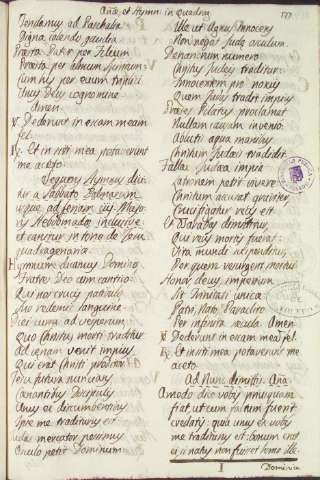 Aña. et Hymni in Quadrag.
177
Tendamus ad Paschalia
Digna colendo gaudia.
Præsta Pater per Filium
Præsta per almum
cognomine
Amen.
V Dederunt in escam meam
fel.
R Et in siti mea potaverunt
me aceto.
Sequens Hymnus
a Sabbato Palmarum
usque ad feriam
Hebdomadæ inclusive
et canitur in tono de
quadragesima.
Hymnum dicamus Domino
Deo cum cantico
Qui nos crucis patibulo
Suo redemit sanguine
Die ad vesperum
Quo Christus morti traditur
Ad cenam venit impius
Qui erat Christi proditor
futura nunciat
Cenantibus Discipulis
Unus ex discumbentibus
Ipse me traditurus est
Iudas mercator pessimus
Osculo petit Dominum
Ille ut Agnus Innocens
Non negat Iudæ osculum.
Denariorum numero
Christus Iudæis traditur
Innocentem pro noxiis
Quem Iudas tradit impius
Præses Pilatus proclamat
Nullam causam invenio
Abluti aqua manibus
Christum Iudæis tradidit
Fallax Iudæa impia
Latronem petit vivere
Christum accusat graviter
Crucifigatur
Et Barabas dimittitur
Qui reus mortis fuerat
Vita mundi suspenditur
Per quem resurgent mortui
Honor decus imperium
Sit Trinitati unicæ
Patri, Nato Paraclito
Per infinita sæcula. Amen.
V Dederunt in escam meam fel
R Et in siti mea potaverunt me
aceto.
Ad Nunc dimittis Aña.
Amodo dico vobis priusquam
fiat ut cum factum fuerit
credatis quia unus ex vobis
me traditurus est: bonum erat
ei si natus non fuisset homo ille.
Dominica